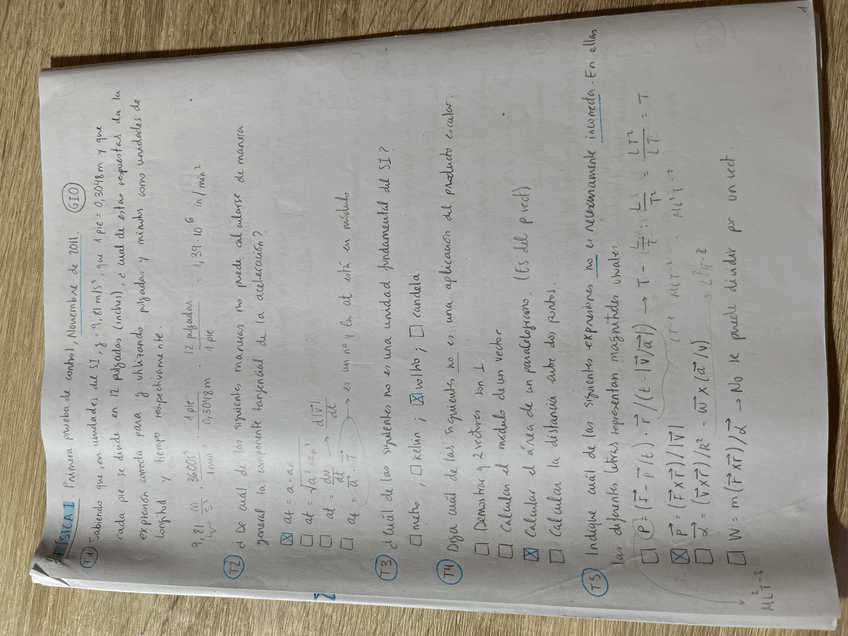 FÍSICA I Primera prueba de control, Noviembre de 2011. GIO
T1 Sabiendo que, en unidades del SI, g = 9,81 m/s², que 1 pie = 0,3048 m y que
cada pie se divide en 12 pulgadas (inches), ¿cual de estas respuestas da la
expresión correcta para g utilizando pulgadas y minutos como unidades de
longitud y tiempo respectivamente.
9,81 m · 3600 s² · 1 pie · 12 pulgadas = 1,39·10⁶ in/min²
1 min² 0,3048 m 1 pie
T2 ¿De cuál de las siguientes maneras no puede calcularse de manera
general la componente tangencial de la aceleración?
☒ at = a - an
☐ at = √a² - an²
☐ at = dv/dt → d|v⃗|/dt
☐ at = a⃗ · τ⃗ → es un nº y la at está en módulo
T3 ¿Cuál de las siguientes no es una unidad fundamental del SI?
☐ metro, ☐ kelvin, ☒ voltio; ☐ candela
T4 Diga cuál de las siguientes no es una aplicación del producto escalar.
☐ Demostrar q 2 vectores son ⊥
☐ Calcular el módulo de un vector
☒ Calcular el área de un paralelogramo. (Es del p vect)
☐ Calcular la distancia entre dos puntos.
T5 Indique cuál de las siguientes expresiones no es necesariamente incorrecta. En ellas
las diferentes letras representan magnitudes usuales.
☐ P = (F⃗ · r⃗/t) · r⃗/(t · |v⃗/a⃗|) → T - L/T : L/T² = LT²/LT = T
☒ P⃗ = (F⃗ x r⃗)/|v⃗|
☐ α⃗ = (v⃗ x r⃗)/R² = w⃗ x (a⃗/v)
☐ W = m(r⃗ x r⃗)/α⃗ → No se puede dividir por un vect.
ML²T⁻³
1